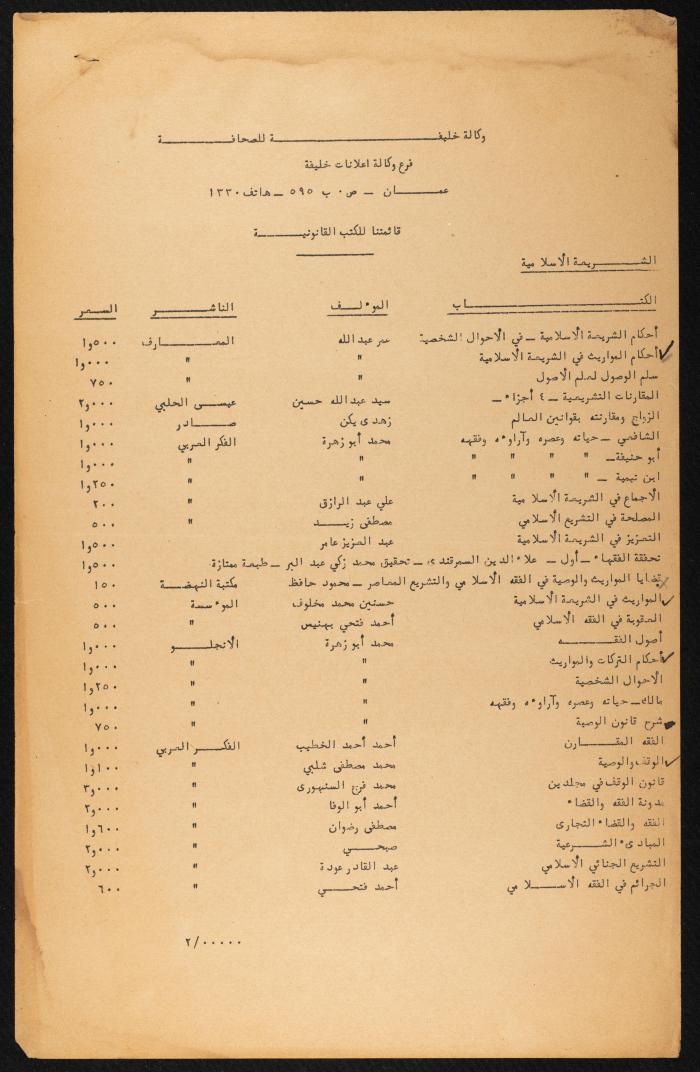 وكالة خليفـــــــــة للصحافـــــــة
فرع وكالة اعلانات خليفة
عمـــــــان ــ ص٠ ب ٥٩٥ ــ هاتف ١٣٣٠
قائمتنا للكتب القانونيـــــــة
الشــــــريعة الاسلامية
الكتـــــــــــــاب المو٠لــف الناشــــــر السـعر
أحكام الشريعة الاسلامية ــ في الاحوال الشخصية عمر عبدالله المعـــارف ٥٠٠و١
أحكام المواريث في الشريعة الاسلامية " " ٠٠٠و١
سلم الوصول لعلم الاصول " " ٧٥٠
المقارنات التشريعية ــ ٤ أجزاء ــ سيد عبدالله حسين عيســى الحلبي ٠٠٠و٢
الزواج ومقارنته بقوانين العالم زهدى يكن صـــــادر ٠٠٠و١
الشافعي ــ حياته وعصره وآراوءه وفقهه محمد أبو زهرة الفكر العربي ٠٠٠و١
أبو حنيفة ــ " " " " " " ٠٠٠و١
ابن تيمية ــ " " " " " " ٢٥٠و١
الاجماع في الشريعة الاسلامية علي عبد الرازق " ٢٠٠
المصلحة في التشريع الاسلامي مصطفى زيـــد " ٥٠٠
التعزيز في الشريعة الاسلامية عبد العزيز عامر ٥٠٠و١
تحفقة الفقهاء ــ أول ــ علاء الدين السمرقندى ــ تحقيق محمد زكي عبد البر ــ طبعة ممتازة ٥٠٠و١
قضايا المواريث والوصية في الفقه الاسلامي والتشريع المعاصر ــ محمود حافظ مكتبة النهضــة ١٥٠
المواريث في الشريعة الاسلامية حسنين محمد مخلوف الموءسسة ٥٠٠
العقوبة في الفقه الاسلامي أحمد فتحي بهنيس " ٥٠٠
أصول الفقـــــه محمد أبو زهرة الانجلـــو ٠٠٠و١
أحكام التركات والمواريث " " ٠٠٠و١
الاحوال الشخصية " " ٢٥٠و١
مالك ــ حياته وعصره وآراوءه وفقهه " " ٠٠٠و١
شرح قانون الوصية " " ٧٥٠
الفقه المقـــــارن أحمد أحمد الخطيب الفكـــر العربي ٠٠٠و١
الوقف والوصية محمد مصطفى شلبي " ١٠٠و١
قانون الوقف في مجلدين محمد فرج السنهورى " ٠٠٠و٣
مدونة الفقه والقضاء أحمد أبو الوفا " ٠٠٠و٢
الفقه والقضاء التجارى مصطفى رضوان " ٦٠٠و١
المبادىء الشــــرعية صبحــــي " ٠٠٠و٢
التشريع الجنائي الاسلامي عبد القادر عودة " ٠٠٠و٢
الجرائم في الفقه الاســــلامي أحمد فتحـــي " ٦٠٠
٢/٠٠٠٠٠